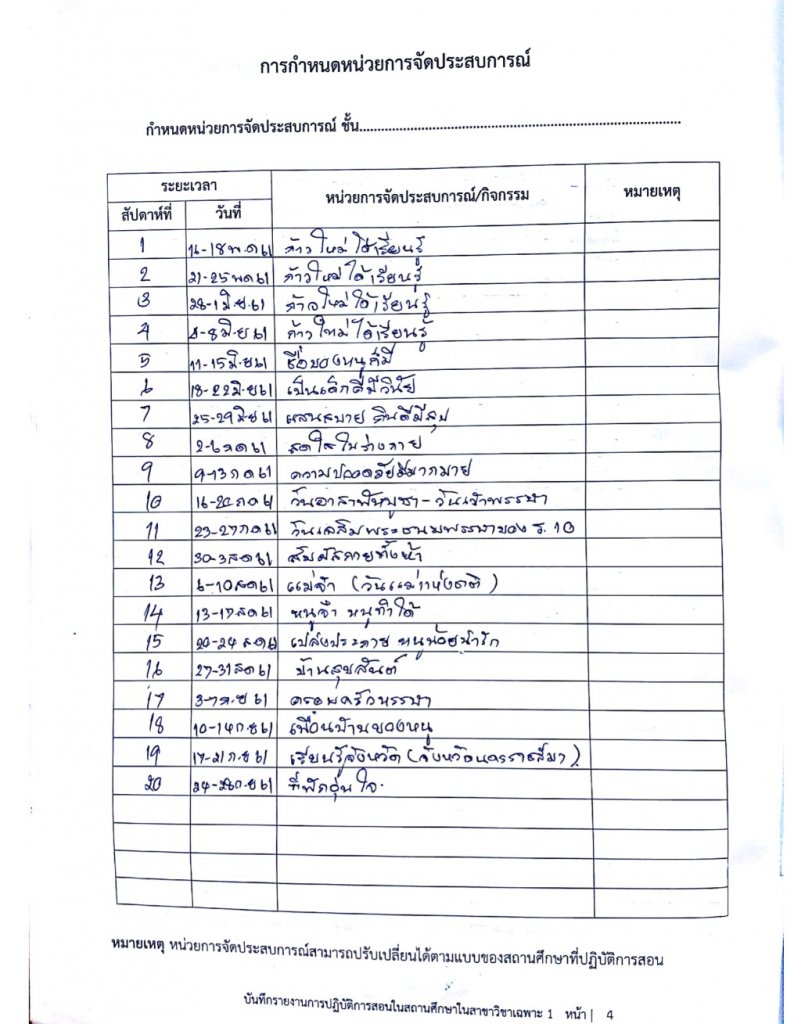 การกำหนดหน่วยการจัดประสบการณ์
กำหนดหน่วยการจัดประสบการณ์ ชั้น................................................................................
ระยะเวลา หน่วยการจัดประสบการณ์/กิจกรรม หมายเหตุ
สัปดาห์ที่ วันที่
1 14-18 พ.ค 61 ก้าวใหม่ ได้เรียนรู้
2 21-25 พ.ค 61 ก้าวใหม่ ได้เรียนรู้
3 28-1 มิ.ย 61 ก้าวใหม่ ได้เรียนรู้
4 4-8 มิ.ย 61 ก้าวใหม่ ได้เรียนรู้
5 11-15 มิ.ย 61 ชื่อของหนูก็มี
6 18-22 มิ.ย 61 เป็นเด็กดีมีวินัย
7 25-29 มิ.ย 61 แสนสบาย กินดีมีสุข
8 2-6 ก.ค 61 สดใสในร่างกาย
9 9-13 ก.ค 61 ความปลอดภัยมีมากมาย
10 16-20 ก.ค 61 วันอาสาฬหบูชา - วันเข้าพรรษา
11 23-27 ก.ค 61 วันเฉลิมพระชนมพรรษาของ ร. 10
12 30-3 ส.ค 61 สัมผัสกายทั้งห้า
13 6-10 ส.ค 61 แม่จ๋า (วันแม่แห่งชาติ)
14 13-17 ส.ค 61 หนูจ๋า หนูทำได้
15 20-24 ส.ค 61 เปล่งประกาย หนูน้อยน่ารัก
16 27-31 ส.ค 61 บ้านสุขสันต์
17 3-7 ก.ย 61 ครอบครัวหรรษา
18 10-14 ก.ย 61 เพื่อนบ้านของหนู
19 17-21 ก.ย 61 เรียนรู้จังหวัด (จังหวัดนครราชสีมา)
20 24-28 ก.ย 61 ที่พักอุ่นใจ
หมายเหตุ หน่วยการจัดประสบการณ์สามารถปรับเปลี่ยนได้ตามแบบของสถานศึกษาที่ปฏิบัติการสอน
บันทึกรายงานการปฏิบัติการสอนในสถานศึกษาในสาขาวิชาเฉพาะ 1 หน้า | 4